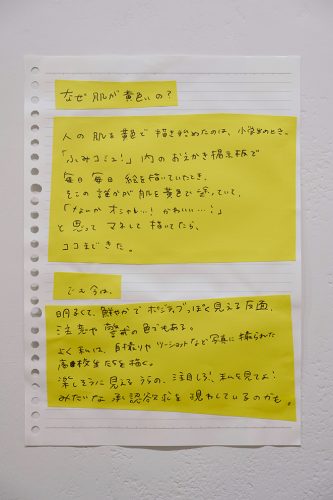 なぜ 肌が 黄色いの？
人の 肌を 黄色で 描き始めたのは、小学生のとき。
「ふみコミュ！」内のおえかき掲示板で
毎日 毎日 絵を描いていたとき、
そこの 誰かが 肌を黄色で塗っていて、
「なんか オシャレ…！ かわいい…！」
と 思って マネして 描いてたら、
ココまできた。
でも今は、
明るくて、鮮やかで ポジティブっぽく見える反面、
注意や 警戒の色でもある。
よく私は、自撮りや ツーショットなど写真に撮られた
高校生たちを描く。
楽しそうに見える うらの、注目しろ！私を見てよ！
みたいな 承認欲求を 現わしているのかも。